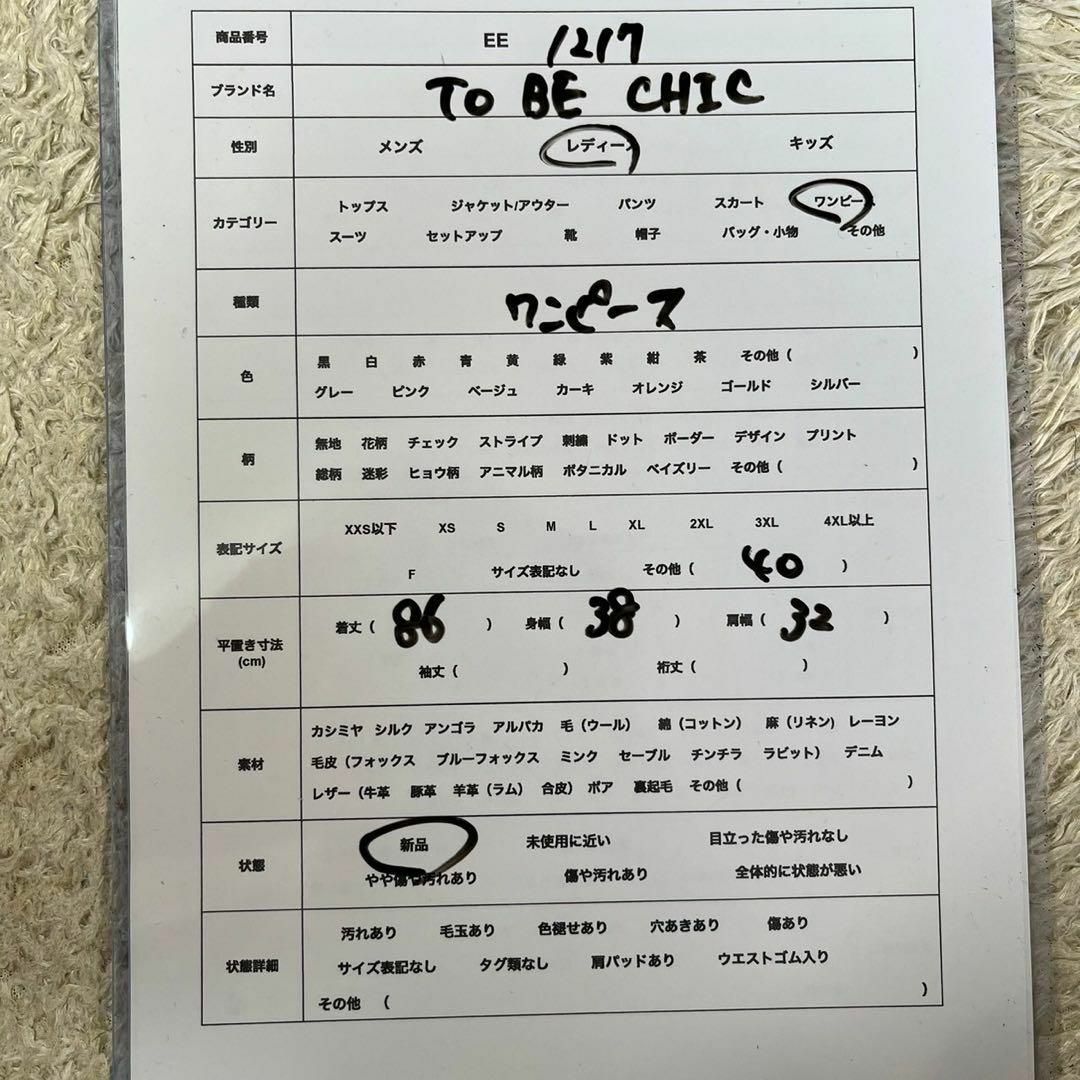 商品番号 EE 1217
ブランド名 TO BE CHIC
性別 メンズ レディース キッズ
カテゴリー
トップス ジャケット/アウター パンツ スカート ワンピース
スーツ セットアップ 靴 帽子 バッグ・小物 その他
種類 ワンピース
色
黒 白 赤 青 黄 緑 紫 紺 茶 その他( )
グレー ピンク ベージュ カーキ オレンジ ゴールド シルバー
柄
無地 花柄 チェック ストライプ 刺繍 ドット ボーダー デザイン プリント
総柄 迷彩 ヒョウ柄 アニマル柄 ボタニカル ペイズリー その他( )
表記サイズ
XXS以下 XS S M L XL 2XL 3XL 4XL以上
F サイズ表記なし その他( 40 )
平置き寸法
(cm)
着丈( 86 ) 身幅( 38 ) 肩幅( 32 )
袖丈( ) 裄丈( )
素材
カシミヤ シルク アンゴラ アルパカ 毛(ウール) 綿(コットン) 麻(リネン) レーヨン
毛皮(フォックス ブルーフォックス ミンク セーブル チンチラ ラビット) デニム
レザー(牛革 豚革 羊革(ラム) 合皮) ボア 裏起毛 その他( )
状態
新品 未使用に近い 目立った傷や汚れなし
やや傷や汚れあり 傷や汚れあり 全体的に状態が悪い
状態詳細
汚れあり 毛玉あり 色褪せあり 穴あきあり 傷あり
サイズ表記なし タグ類なし 肩パッドあり ウエストゴム入り
その他 ( )